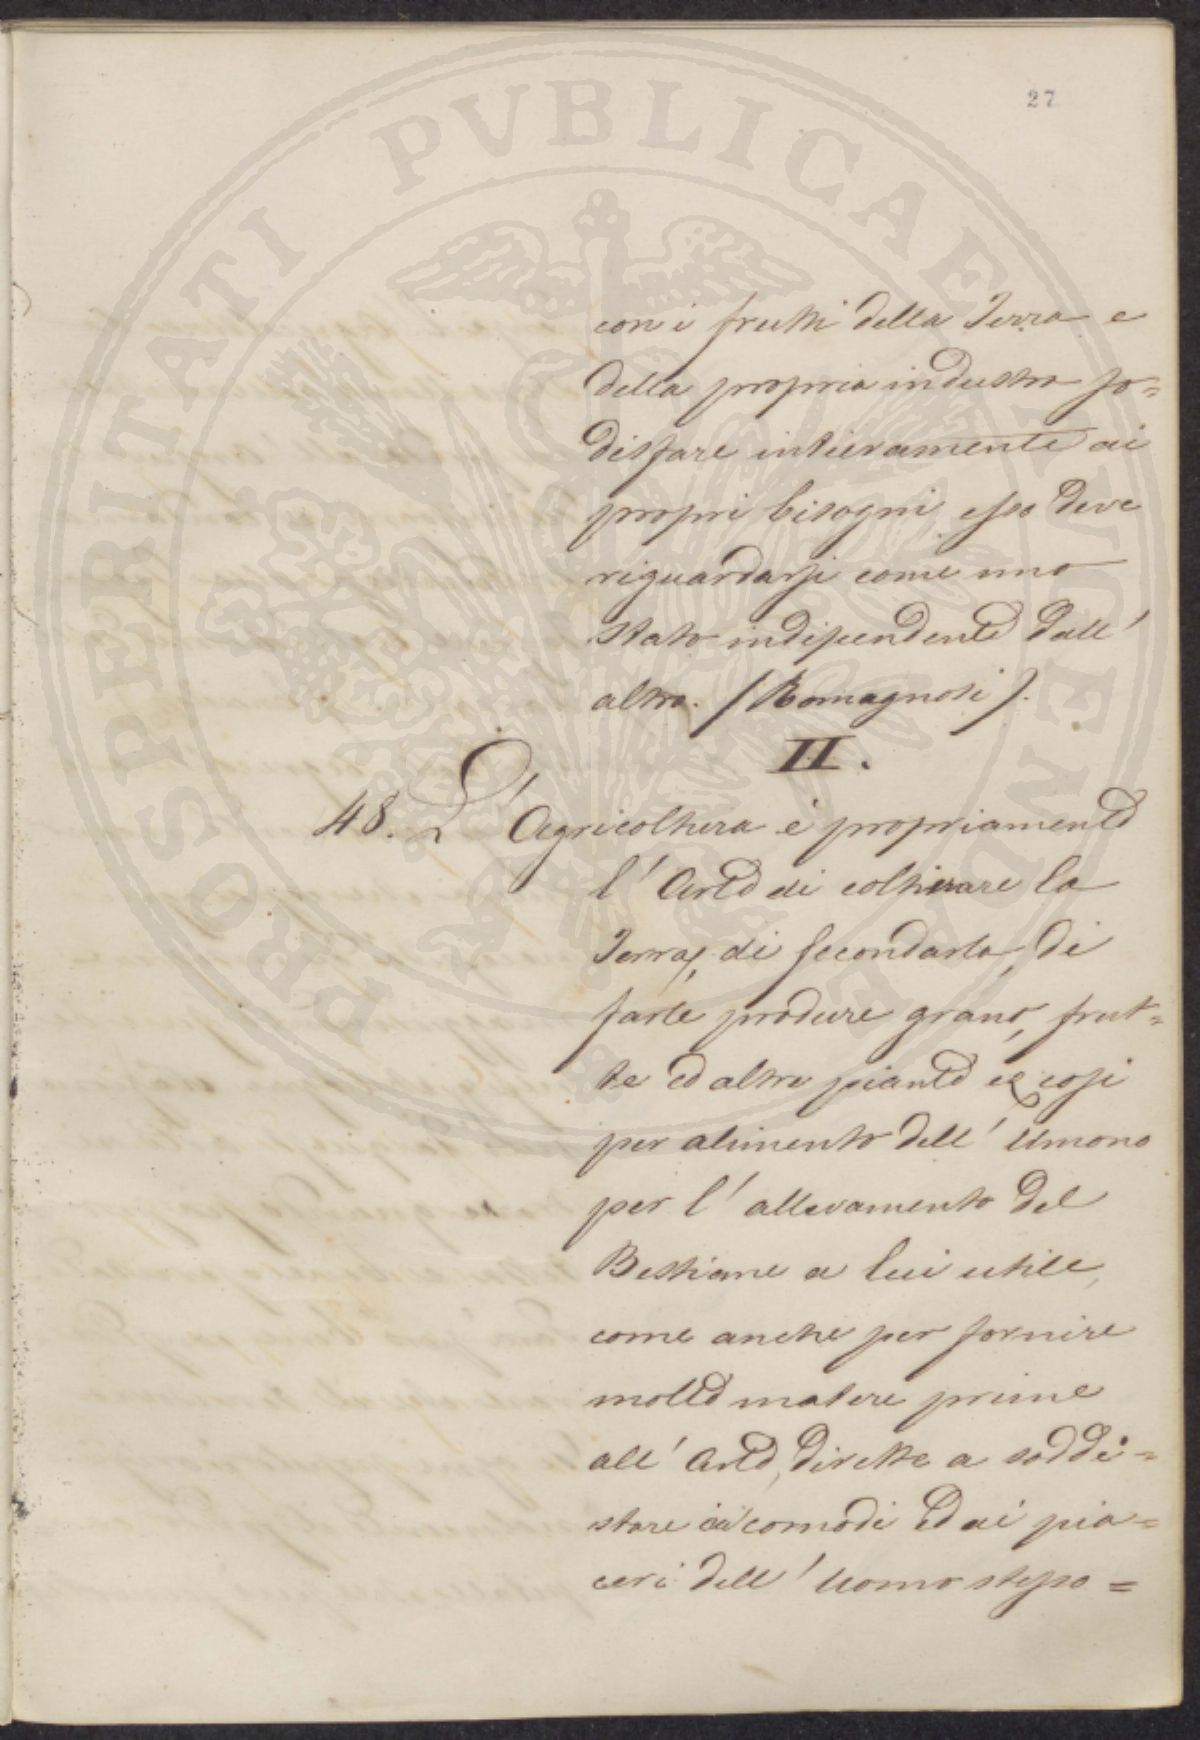 27
con i frutti della Terra e
della propria industra so=
disfare intieramente ai
propri bisogni esso deve
riguardarsi come uno
stato indipendente dall'
altro. (Romagnosi).
II.
48. L'Agricoltura è propriamente
l'Arte di coltivare la
Terra, di fecondarla, di
farle produre grano, frut=
te ed altre piante e cosi
per alimento dell'Umono
per l'allevamento del
Bestiame a lui utile,
come anche per fornire
molte matere prime
all'Arte, dirette a soddi=
sfare ai comodi ed ai pia=
ceri dell'Uomo stesso =
PROSPERITATI PVBLICAE AVGENDAE